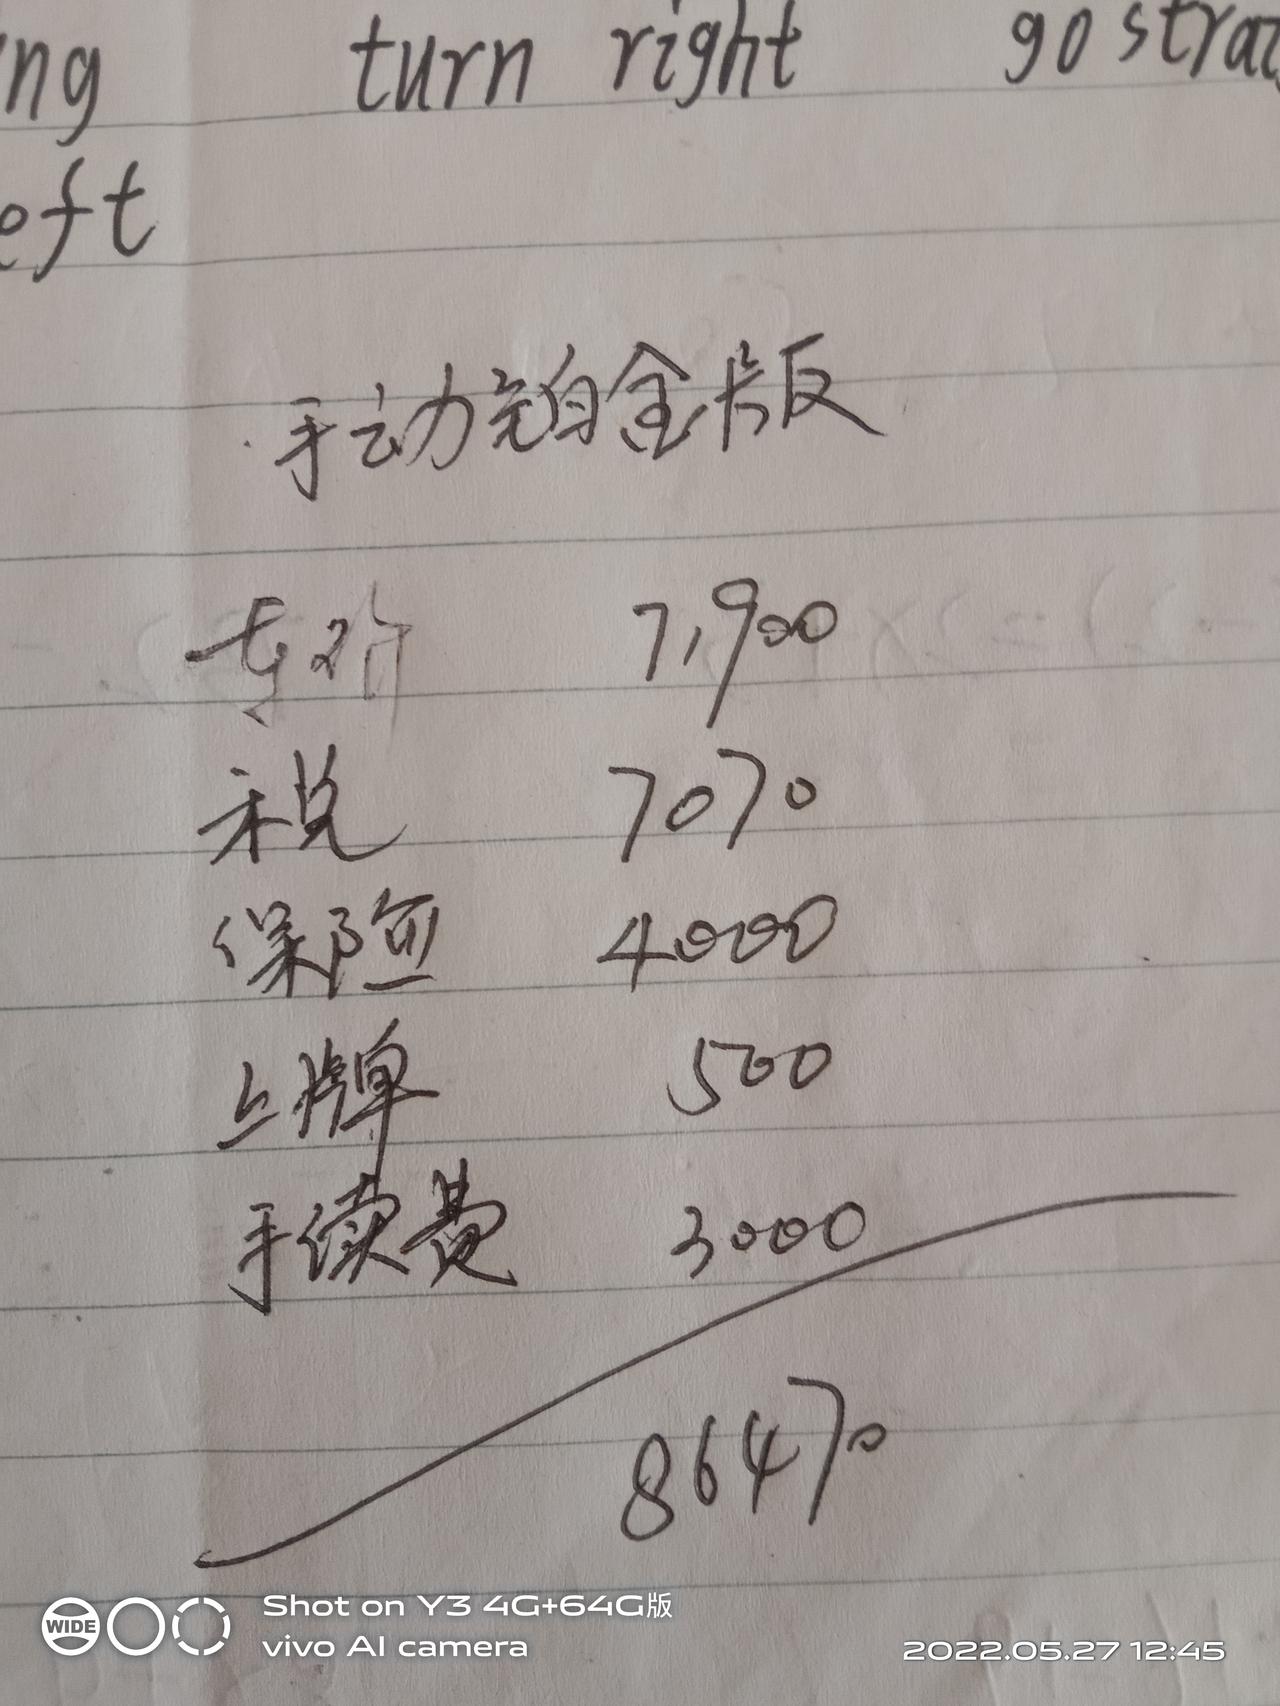 ng turn right go stra
eft
手动铂金版
车价 71900
税 7070
保险 4000
上牌 500
手续费 3000
86470
WIDE Shot on Y3 4G+64G版
vivo AI camera
2022.05.27 12:45